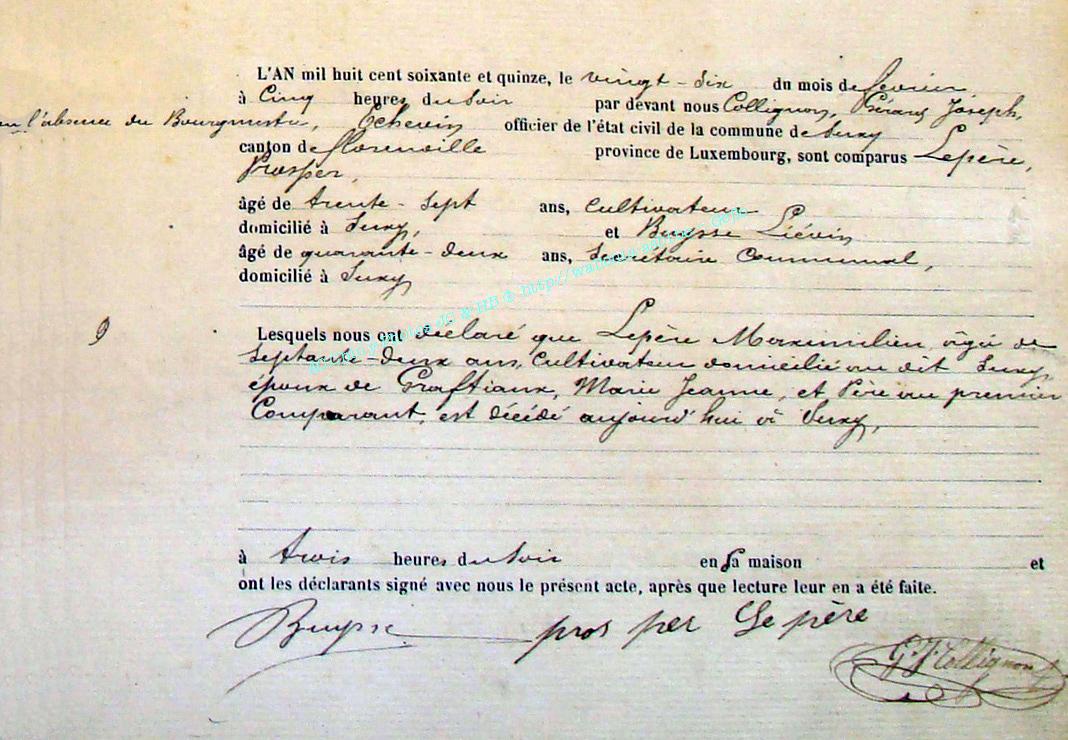 L'AN mil huit cent soixante et quinze, le vingt-six du mois de février
à Cinq heures du Soir par devant nous Collignon, Gérard Joseph,
en l'absence du Bourgmestre, Echevin officier de l'état civil de la commune de Suxy
canton de Florenville province de Luxembourg, sont comparus Lepère,
Prosper,
âgé de trente-Sept ans, Cultivateur
domicilié à Suxy, et Buysse Liévin
âgé de quarante-deux ans, Secrétaire Communal,
domicilié à Suxy
9 Lesquels nous ont déclaré que Lepère Maximilien, âgé de
Septante-deux ans, Cultivateur domicilié au dit Suxy,
époux de Graftiaux, Marie Jeanne, et Père au premier
Comparant, est décédé aujourd'hui à Suxy,
à trois heures du Soir en sa maison et
ont les déclarants signé avec nous le présent acte, après que lecture leur en a été faite.
Buysse pros per Le père
G J Collignon